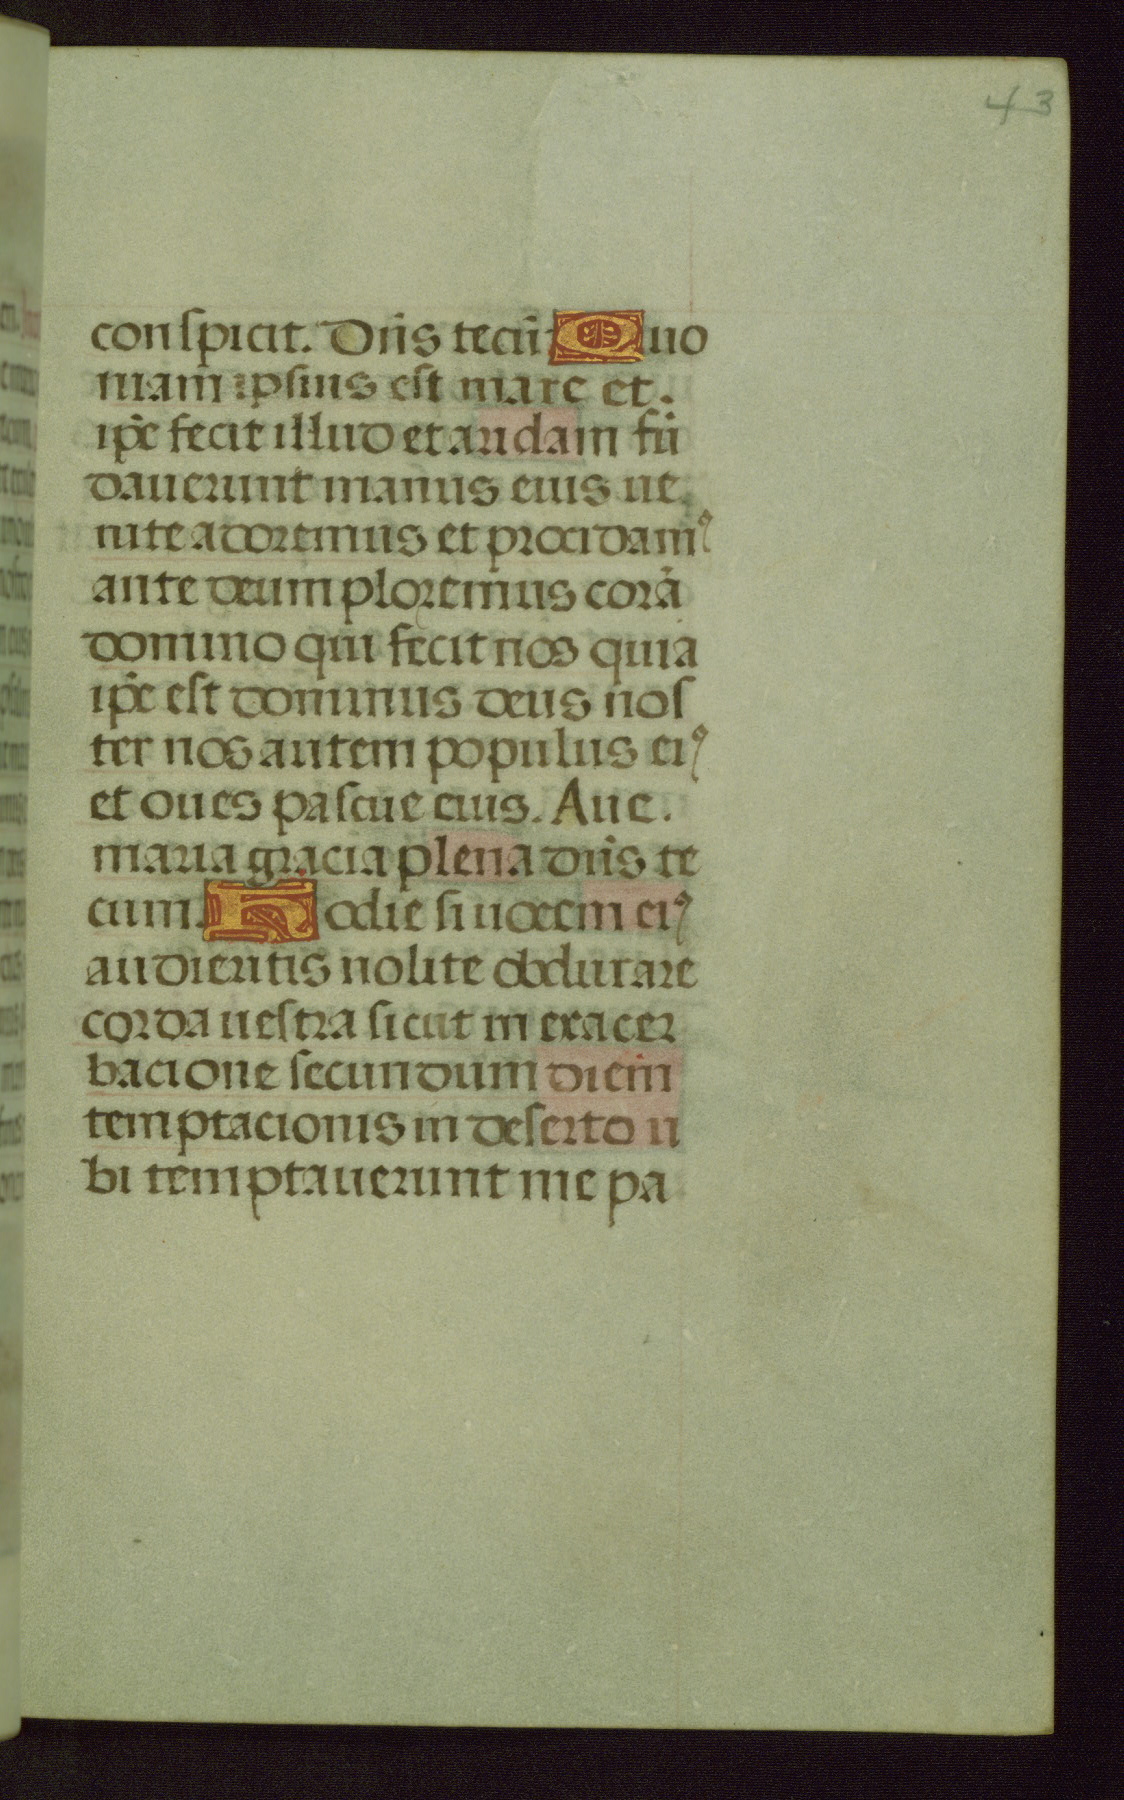 43
conspicit. Dñs tecũ Quo
niam ipsius est mare et.
ip̃e fecit illud et aridam fũ
dauerunt manus eius ue
nite adoremus et procidamꝰ
ante deum ploremus corã
domino qui fecit nos quia
ip̃e est dominus deus nos
ter nos autem populus eiꝰ
et oues pascue eius. Aue.
maria gracia plena dñs te
cum. Hodie si uocem eiꝰ
audieritis nolite obdurare
corda uestra sicut in exacer
bacione secundum diem
temptacionis in deserto u
bi temptauerunt me pa